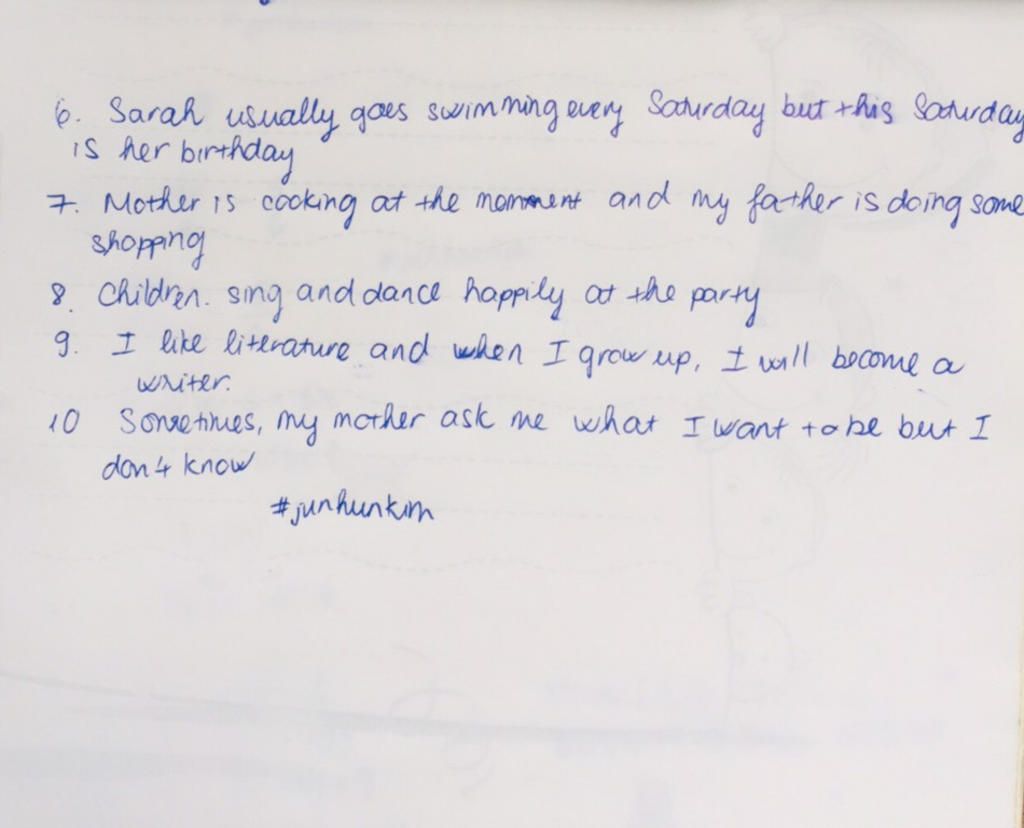 6. Sarah usually goes swimming every Saturday but this Saturday
is her birthday
7. Mother is cooking at the moment and my father is doing some
shopping
8. Children. sing and dance happily at the party
9. I like literature and when I grow up, I will become a
writer.
10 Sometimes, my mother ask me what I want to be but I
don't know
#junhunkim